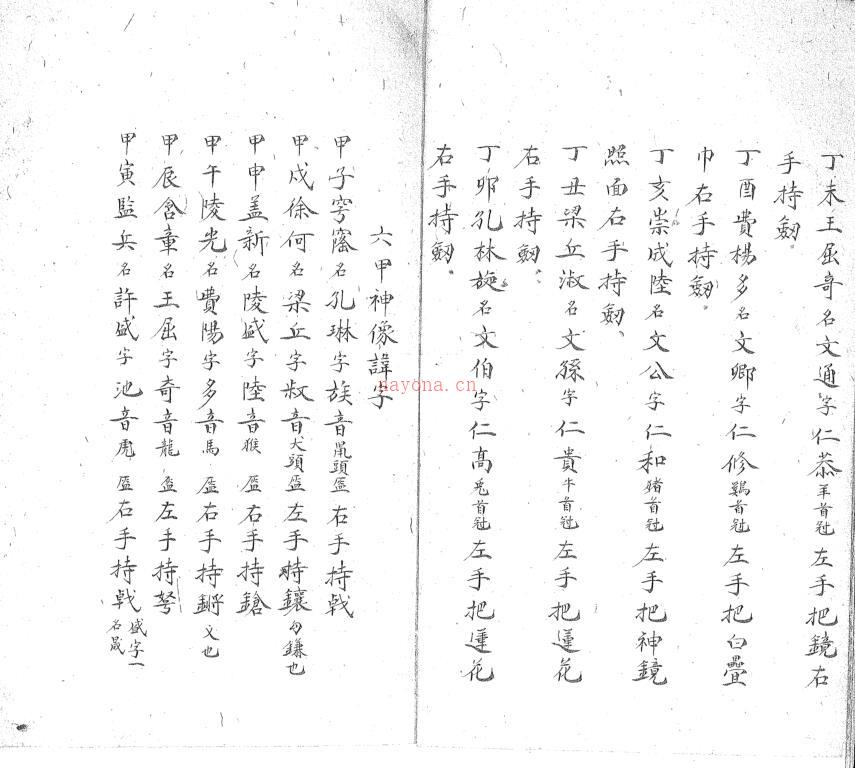 丁未王屈奇名文通字仁恭羊首冠左手把鏡右
手持劔。
丁酉費楊多名文卿字仁修鷄首冠左手把白疊
巾右手持劔。
丁亥崇成陸名文公字仁和猪首冠左手把神鏡
照面右手持劔、
丁丑梁丘淑名文孫字仁貴牛首冠左手把蓮花
右手持劔。
丁卯孔林旋名文伯字仁高兎首冠左手把蓮花
右手持劔。
六甲神像諱字
甲子穹窿名孔琳字族音鼠頭盔右手持戟
甲戌徐何名梁丘字叔音犬頭盔左手持鑲勾鎌也
甲申盖新名陵盛字陸音猴盔右手持鎗
甲午陵光名費陽字多音馬盔右手持鏘叉也
甲辰含章名王屈字奇音龍盔左手持弩
甲寅監兵名許盛字池音虎盔右手持戟盛字一名晟
nayona.cn